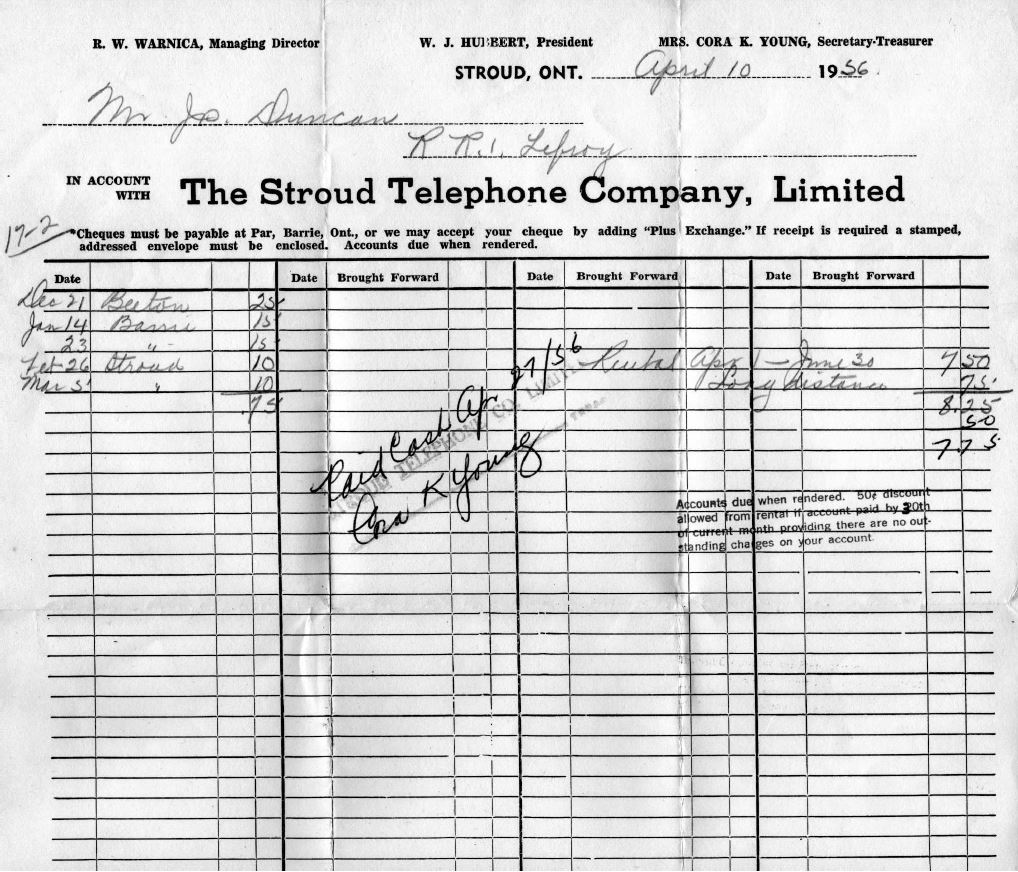 R. W. WARNICA, Managing Director W. J. HULBERT, President MRS. CORA K. YOUNG, Secretary-Treasurer
STROUD, ONT. April 10 1956.
Mr Js. Duncan
R R.1. Lefroy
IN ACCOUNT WITH The Stroud Telephone Company, Limited
17-2
*Cheques must be payable at Par, Barrie, Ont., or we may accept your cheque by adding "Plus Exchange." If receipt is required a stamped,
addressed envelope must be enclosed. Accounts due when rendered.
Date Date Brought Forward Date Brought Forward Date Brought Forward
Dec 21 Beeton 25
Jan 14 Barrie 15
23 " - 15
Feb 26 Stroud 10
Mar 5 " 10
.75
Rental Apr 1 - June 30 7 50
Long distance 75
8.25
50
7.75
Paid Cash Ap. 27/56
Cora K Young
TELEPHONE CO. LIMITED
Accounts due when rendered. 50¢ discount
allowed from rental if account paid by 30th
of current month providing there are no out-
standing charges on your account.